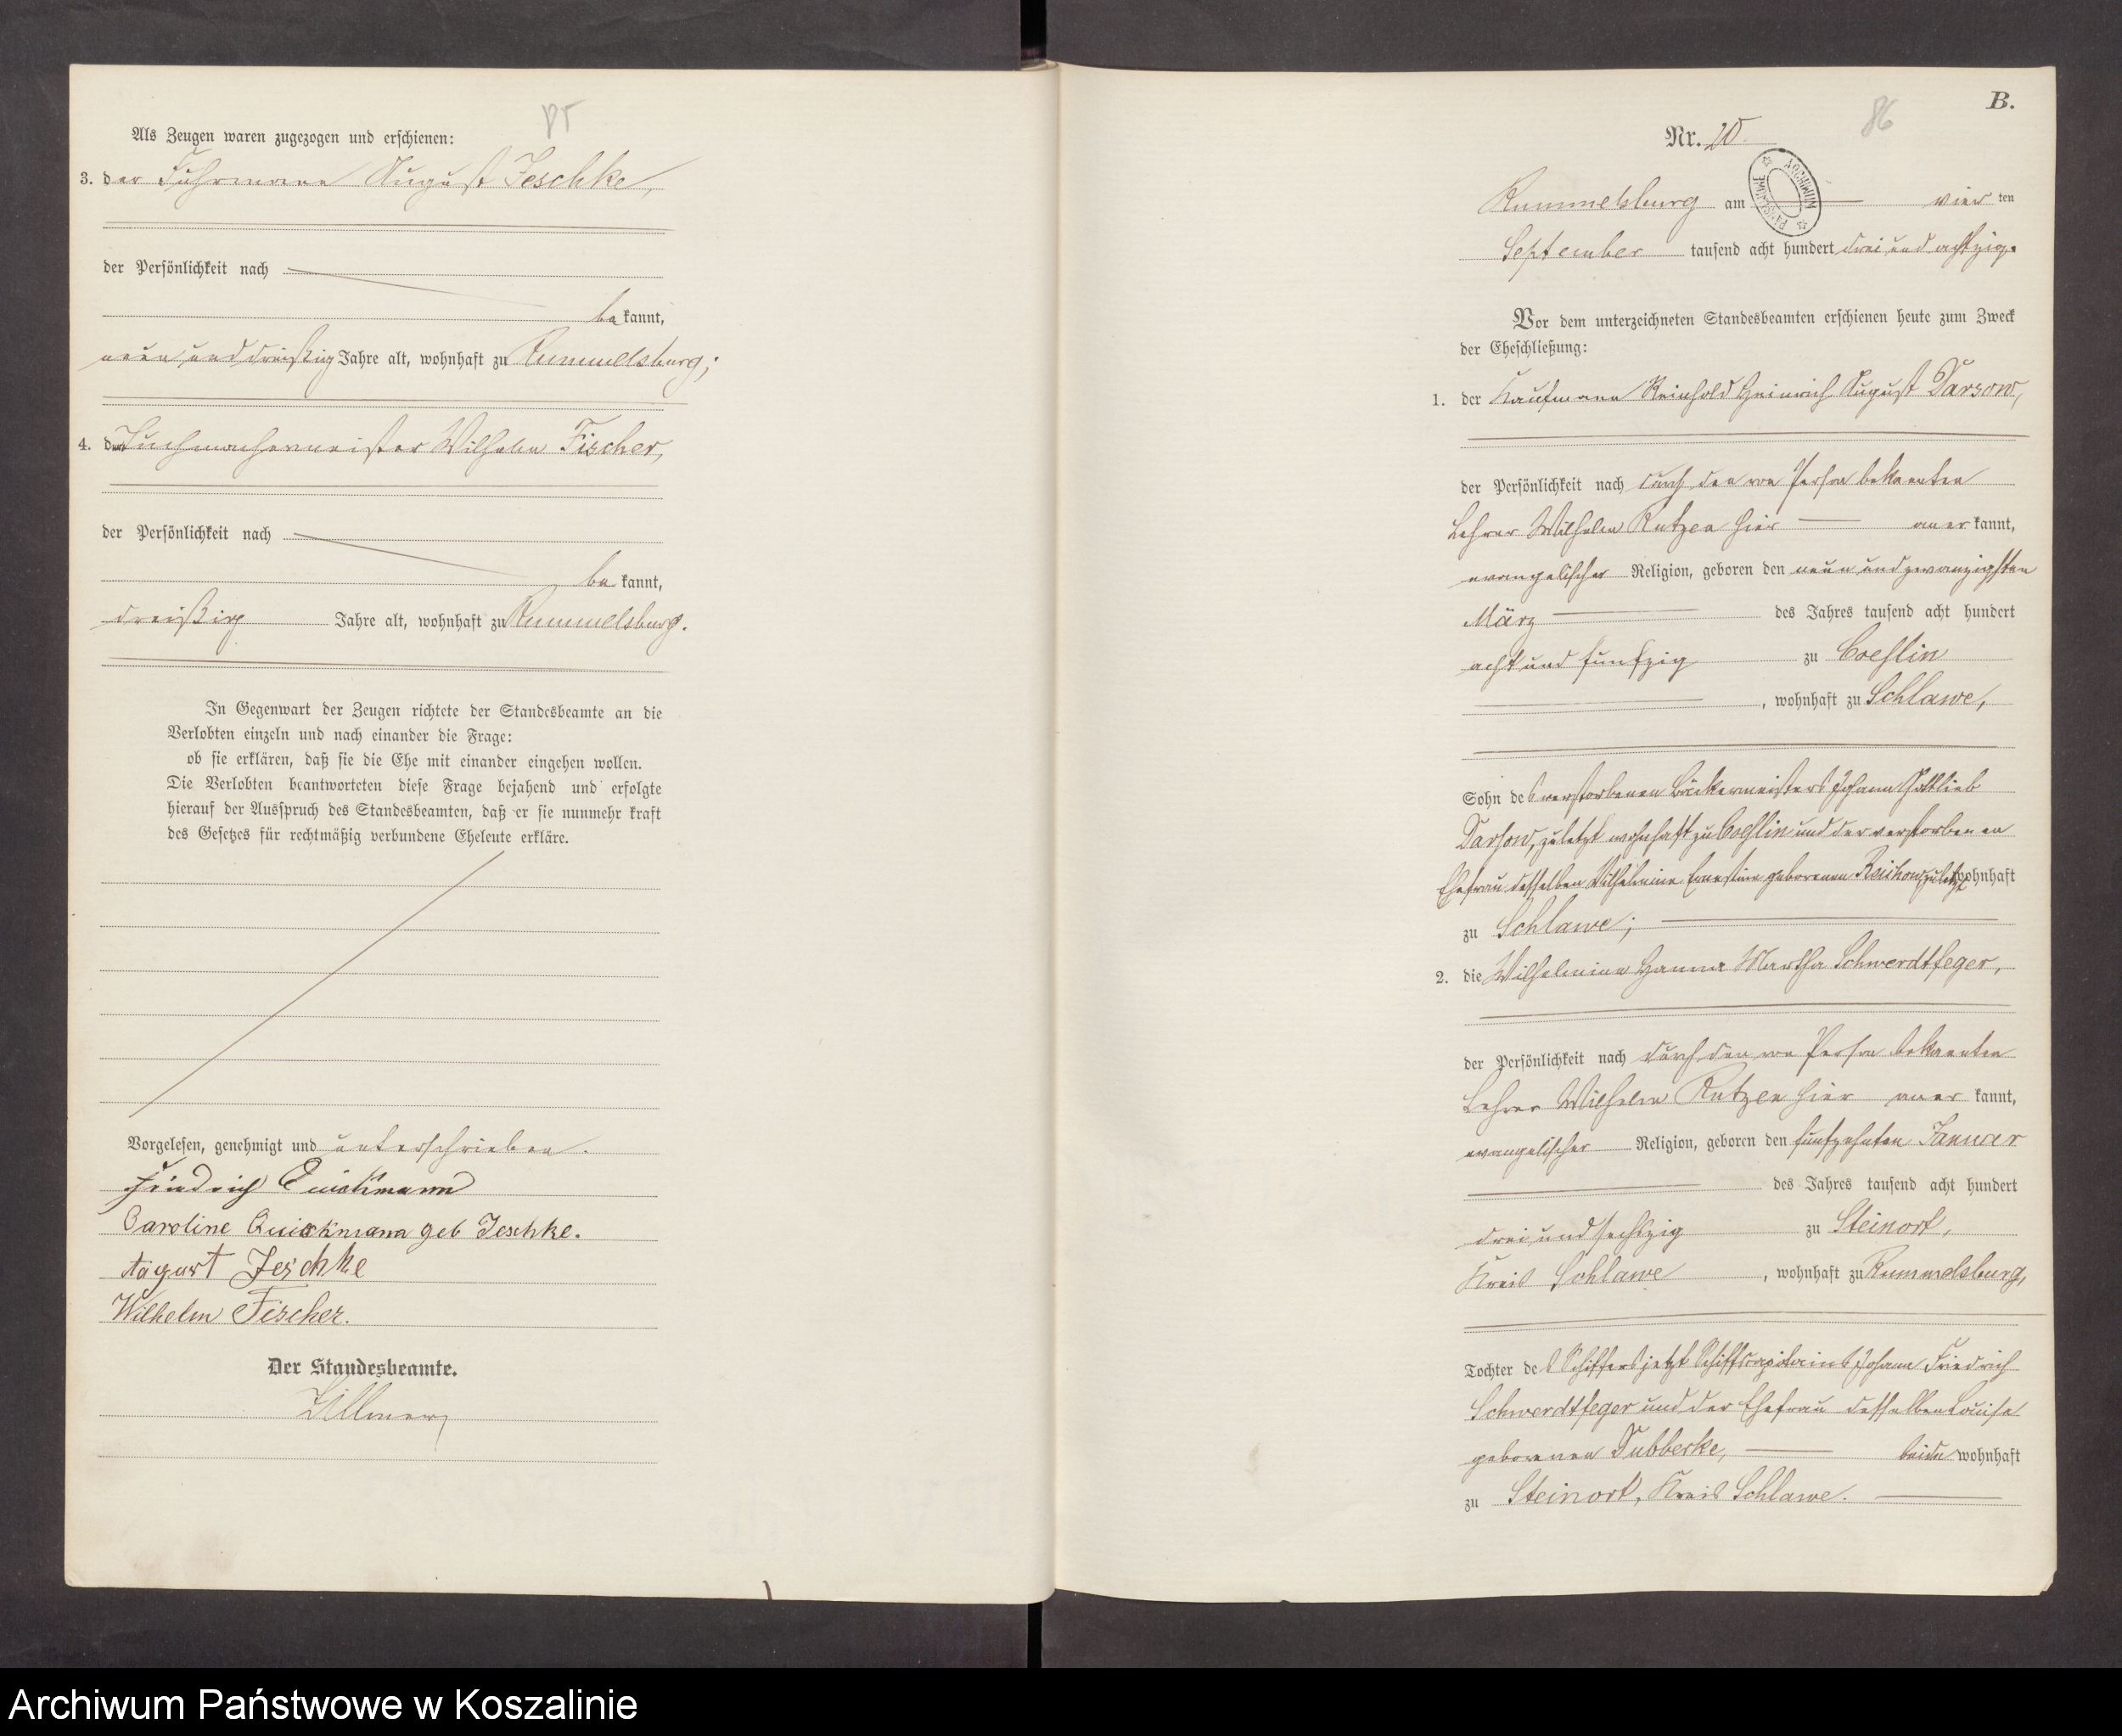 85
Als Zeugen waren zugezogen und erschienen:
3. der Fuhrmann August Jeschke,
der Persönlichkeit nach
bekannt,
neun und dreißig Jahre alt, wohnhaft zu Rummelsburg;
4. der Tuchmachermeister Wilhelm Fischer,
der Persönlichkeit nach
bekannt,
dreißig Jahre alt, wohnhaft zu Rummelsburg.
In Gegenwart der Zeugen richtete der Standesbeamte an die
Verlobten einzeln und nach einander die Frage:
ob sie erklären, daß sie die Ehe mit einander eingehen wollen.
Die Verlobten beantworteten diese Frage bejahend und erfolgte
hierauf der Ausspruch des Standesbeamten, daß er sie nunmehr kraft
des Gesetzes für rechtmäßig verbundene Eheleute erkläre.
Vorgelesen, genehmigt und unterschrieben.
Friedrich Quickmann
Caroline Quickmann geb Jeschke.
August Jeschke
Wilhelm Fischer.
Der Standesbeamte.
B.
86
Nr. 20.
ARCHIWUM PAŃSTWOWE
Rummelsburg am vier ten
September tausend acht hundert drei und achtzig.
Vor dem unterzeichneten Standesbeamten erschienen heute zum Zweck
der Eheschließung:
1. der Kaufmann Reinhold Heinrich August Darsow,
der Persönlichkeit nach durch den von Person bekannten
Lehrer Wilhelm Rutzen hier anerkannt,
evangelischer Religion, geboren den neun und zwanzigsten
März des Jahres tausend acht hundert
acht und funfzig zu Coeslin
, wohnhaft zu Schlawe,
Sohn des verstorbenen Bäckermeisters Johann Gottlieb
Darsow, zuletzt wohnhaft zu Coeslin und der verstorbenen
Ehefrau desselben Wilhelmine Ernestine geborenen Reichow, zuletzt wohnhaft
zu Schlawe;
2. die Wilhelmine Hanna Martha Schwerdtfeger,
der Persönlichkeit nach durch den von Person bekannten
Lehrer Wilhelm Rutzen hier anerkannt,
evangelischer Religion, geboren den funfzehnten Januar
des Jahres tausend acht hundert
drei und sechszig zu Steinort,
Kreis Schlawe, wohnhaft zu Rummelsburg,
Tochter des Schiffers jetzt Schiffscapitains Johann Friedrich
Schwerdtfeger und der Ehefrau desselben Louise
geborenen Dubberke, beide wohnhaft
zu Steinort, Kreis Schlawe.
Archiwum Państwowe w Koszalinie